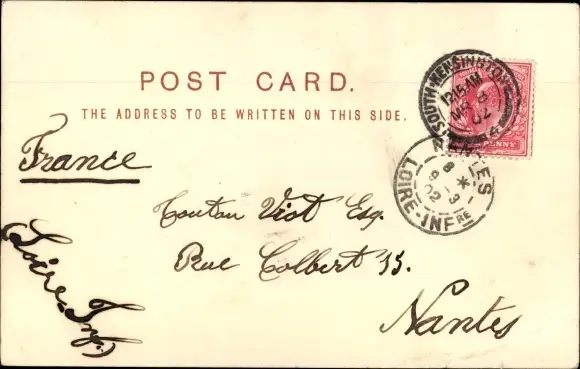 POST CARD.
THE ADDRESS TO BE WRITTEN ON THIS SIDE.
France
Viot Esq.
Rue Colbert
Nantes
(Loire-Inf.)
SOUTH-KENSINGTON
12.15 AM
MR 8
02
PENNY
NANTES
8 *
9 - 3
02
LOIRE-INF RE